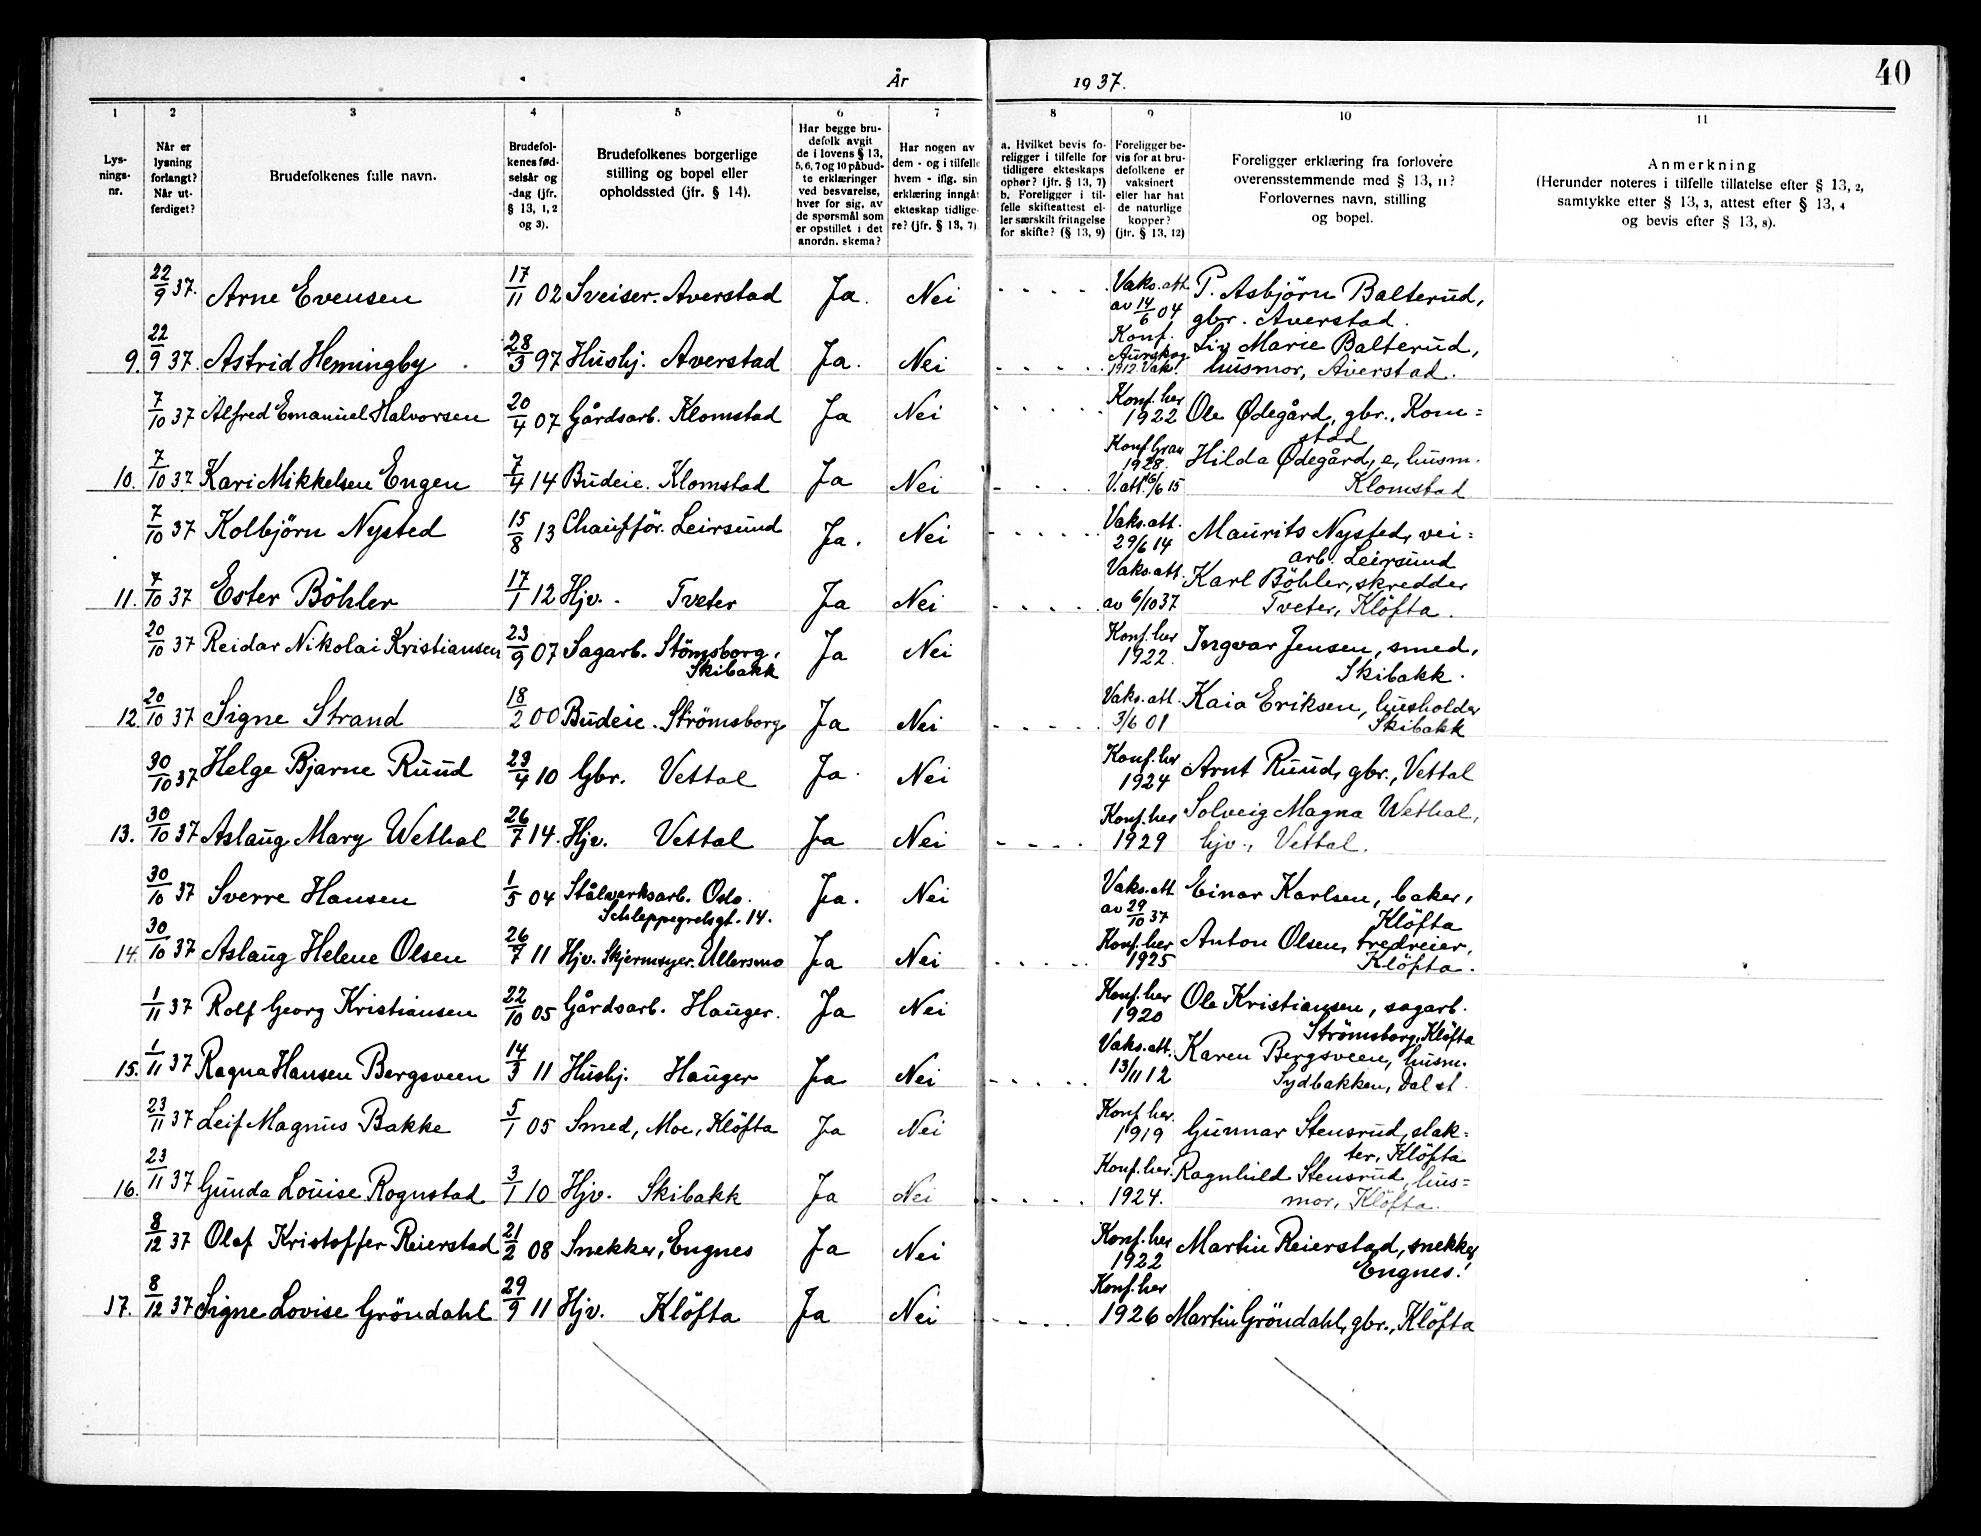 År 1937.
40
1
2
3
4
5
6
7
8
9
10
11
Lys-
nings-
nr.
Når er
lysning
forlangt?
Når ut-
ferdiget?
Brudefolkenes fulle navn.
Brudefol-
kenes fød-
selsår og
-dag (jfr.
§ 13, 1, 2
og 3).
Brudefolkenes borgerlige
stilling og bopel eller
opholdssted (jfr. § 14).
Har begge bru-
defolk avgit
de i lovens § 13,
5, 6, 7 og 10 påbud-
te erklæringer
ved besvarelse,
hver for sig, av
de spørsmål som
er opstillet i det
anordn. skema?
Har nogen av
dem - og i tilfelle
hvem - iflg. sin
erklæring inngåt
ekteskap tidlige-
re? (jfr. § 13, 7)
a. Hvilket bevis fo-
religger i tilfelle for
tidligere ekteskaps
ophør? (jfr. § 13, 7)
b. Foreligger i til-
felle skifteattest el-
ler særskilt fritagelse
for skifte? (§ 13, 9)
Foreligger be-
vis for at bru-
defolkene er
vaksinert
eller har hat
de naturlige
kopper?
(jfr. § 13, 12)
Foreligger erklæring fra forlovere
overensstemmende med § 13, 11?
Forlovernes navn, stilling
og bopel.
Anmerkning
(Herunder noteres i tilfelle tillatelse efter § 13, 2,
samtykke efter § 13, 3, attest efter § 13, 4
og bevis efter § 13, 8).
22/9 37. Arne Evensen 17/11 02 Sveiser. Averstad Ja. Nei Vaks. att. av 14/6 04 P. Asbjörn Balterud,
gbr. Averstad.
9. 22/9 37. Astrid Hemingby 28/3 97 Hushj. Averstad Ja. Nei Konf. Aurskog 1912. Vaks. Liv Marie Balterud,
husmor, Averstad.
7/10 37 Alfred Emanuel Halvorsen 20/4 07 Gårdsarb. Klomstad Ja Nei Konf. her 1922 Ole Ødegård, gbr., Kom=
stad
10. 7/10 37. Kari Mikkelsen Engen 7/4 14 Budeie. Klomstad Ja Nei Konf. Gran 1928. V. att. 16/6 15 Hilda Ødegård, e, husm.
Klomstad
7/10 37 Kolbjörn Nysted 15/8 13 Chaufför. Leirsund Ja. Nei Vaks. att. 29/6 14 Maurits Nysted, vei=
arb. Leirsund
11. 7/10 37 Ester Böhler 17/1 12 Hjv. Tveter Ja Nei Vaks. att. av 6/10 37 Karl Böhler, skredder
Tveter, Klöfta.
20/10 37 Reidar Nikolai Kristiansen 23/9 07 Sagarb. Stömsborg,
Skibakk Ja Nei Konf. her 1922. Ingvar Jensen, smed,
Skibakk.
12. 20/10 37 Signe Strand 18/2 00 Budeie. Strömsborg Ja Nei Vaks. att. 3/6 01 Kaia Eriksen, husholder
Skibakk
30/10 37 Helge Bjarne Ruud 23/4 10 Gbr. Vettal Ja. Nei Konf. her 1924 Arnt Ruud, gbr., Vettal
13. 30/10 37 Aslaug Mary Wethal 26/7 14. Hjv. Vettal Ja Nei Konf. her 1929 Solveig Magna Wethal,
hjv., Vettal.
30/10 37 Sverre Hansen 1/5 04 Stålverksarb. Oslo.
Schleppegrelsgt. 14. Ja. Nei Vaks. att. av 29/10 37 Einar Karlsen, baker,
Klöfta
14. 30/10 37 Aslaug Helene Olsen 26/7 11 Hjv. Skjermsyer. Ullersmo Ja Nei Konf. her 1925 Anton Olsen, tredreier,
Klöfta.
1/11 37 Rolf Georg Kristiansen 22/10 05 Gårdsarb. Hauger. Ja Nei Konf. her 1920 Ole Kristiansen, sagarb.
Strömsborg, Klöfta
15. 1/11 37 Ragna Hansen Bergsveen 14/3 11 Hushj. Hauger Ja Nei Vaks. att. 13/11 12 Karen Bergsveen, husm.
Sydbakken, Dal st.
23/11 37 Leif Magnus Bakke 5/1 05 Smed, Moe, Klöfta Ja Nei Konf. her. 1919 Gunnar Stensrud, slak=
ter, Klöfta
16. 23/11 37 Gunda Louise Rognstad 3/1 10 Hjv. Skibakk Ja Nei Konf. her. 1924. Ragnhild Stensrud, hus=
mor, Klöfta.
8/12 37 Olaf Kristoffer Reierstad 21/2 08 Snekker, Engnes Ja Nei Konf. her 1922 Martin Reierstad, snekker
Engnes!
17. 8/12 37 Signe Lovise Gröndahl 29/9 11 Hjv. Klöfta Ja Nei Konf. her 1926 Martin Gröndahl, gbr., Klöfta